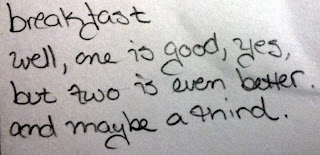 breakfast
well, one is good, yes,
but two is even better.
and maybe a third.